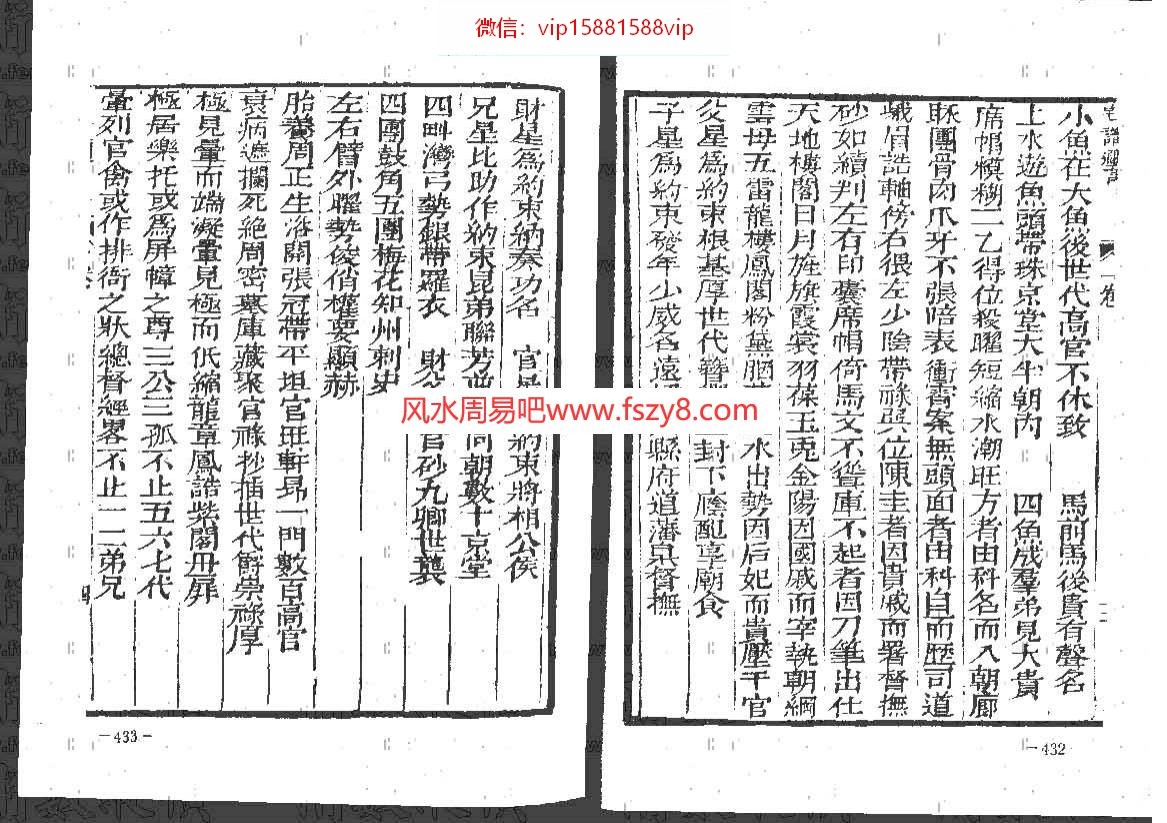 微信：vip15881588vip
小魚在大魚後世代高官不休致　馬前馬後貴有聲名
上水遊魚頭帶珠京堂大半朝內　四魚成羣弟兄大貴
席帽模糊二乙得位殺曜短縮水潮旺方者由科名而入朝廊
團骨肉爪牙不張陪表衝霄案無頭面者由科目而歷司道
峨眉誥軸傍右很左少陰帶祿與位陳圭者因貴戚而署督撫
砂如續判左右印囊席帽倚馬文不聳庫不起者因刀筆出仕
天地樓閣日月旌旗霞裳羽葆玉兎金陽因國戚而宰執朝綱
雲母五雷龍樓鳳閣粉黛胭　水出勢因后妃而貴壓千官
父星為約束根基厚世代簪　封下廕配享廟食
子星為約束發年少威名遠　縣府道藩臬督撫
卷
432
財星為約束納奏功名　官　約束將相公侯
兄星比助作約束昆弟聯芳並　同朝數十京堂
四畔灣弓勢銀帶羅衣　財　官砂九卿世襲
四團鼓角五團梅花知州刺史
左右臂外曜勢俊俏權要顯赫
胎養周正生浴關張冠帶平坦官旺軒昂一門數百高官
衰病遮攔死絕周密墓庫藏聚官祿抄插世代爵崇祿厚
極見暈而端凝暈見極而低縮龍章鳳誥紫閣丹扉
極居樂托或為屏幛之尊三公三孤不止五六七代
暈列官禽或作排衙之狀總督經畧不止一二弟兄
四
-433-
风水周易吧www.fszy8.com